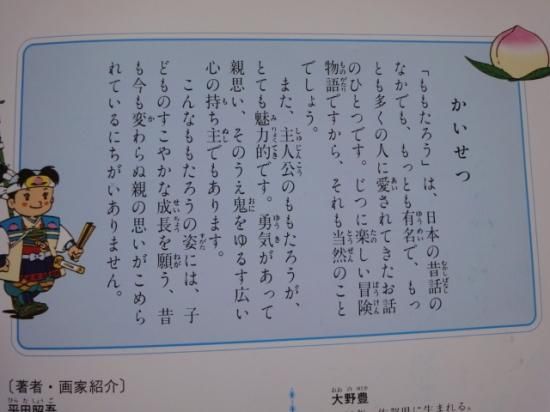 かいせつ
「ももたろう」は、日本の昔話の
なかでも、もっとも有名で、もっ
とも多くの人に愛されてきたお話
のひとつです。じつに楽しい冒険
物語ですから、それも当然のこと
でしょう。
また、主人公のももたろうが、
とても魅力的です。勇気があって
親思い、そのうえ鬼をゆるす広い
心の持ち主でもあります。
こんなももたろうの姿には、子
どものすこやかな成長を願う、昔
も今も変わらぬ親の思いがこめら
れているにちがいありません。
〔著者・画家紹介〕
平田昭吾
大野豊